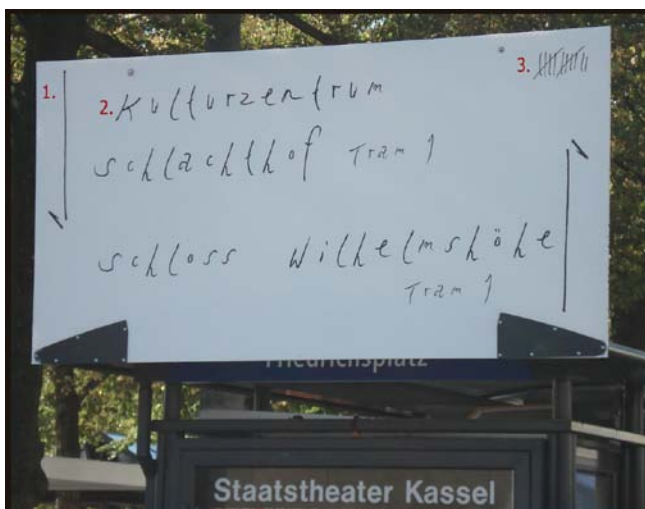 1.
2. Kulturzentrum
3.
schlachthof Tram 1
schloss Wilhelmshöhe
Tram 1
Friedrichsplatz
Staatstheater Kassel